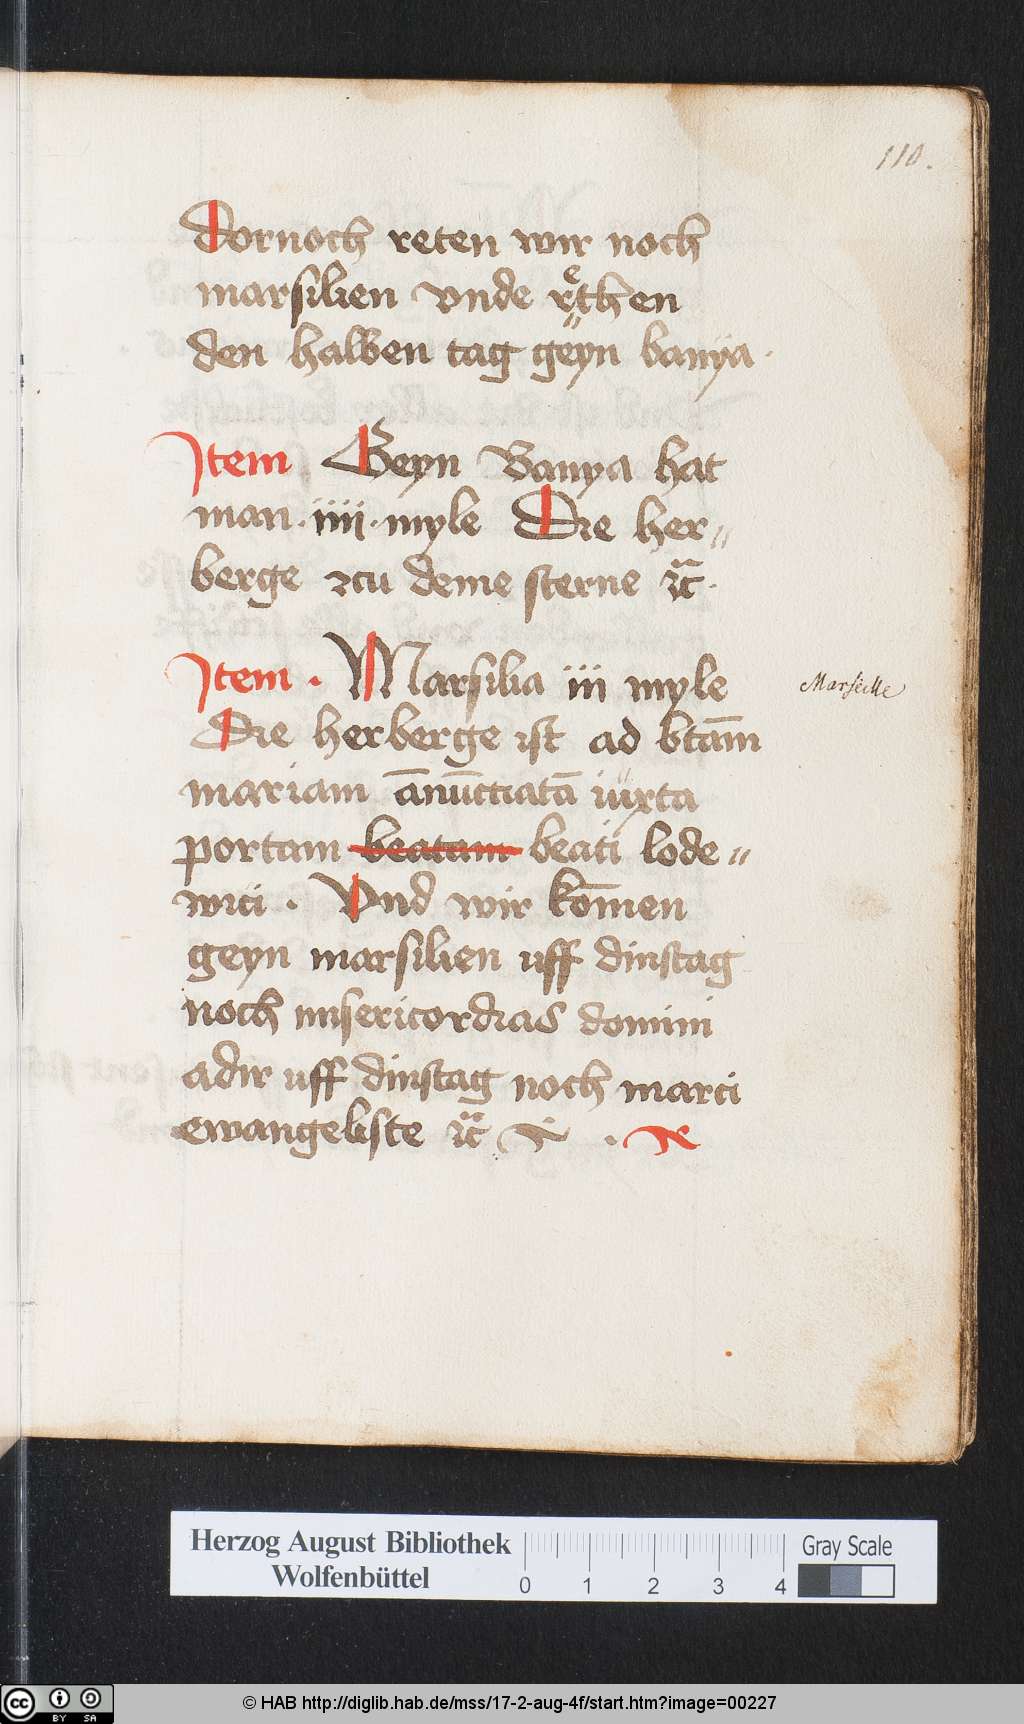 110.
Dornoch reten wir noch
marsilien vnde rͤthen
den halben tag geyn banya ·
Item Geyn Banya hat
man · iiii · myle Die her„
berge zcu deme sterne ⁊c̃ ·
Item · Marsilia iii myle
Marseille
Die herberge ist ad btām
mariam ānūctiatā iuxta
portam beatam beati lode„
wici · Vnd wir kōmen
geyn marsilien uff dinstag
noch misericordias domini
adir uff dinstag noch marci
ewangeliste ⁊c̃
Herzog August Bibliothek
Wolfenbüttel
0 1 2 3 4
Gray Scale
cc BY SA
© HAB http://diglib.hab.de/mss/17-2-aug-4f/start.htm?image=00227